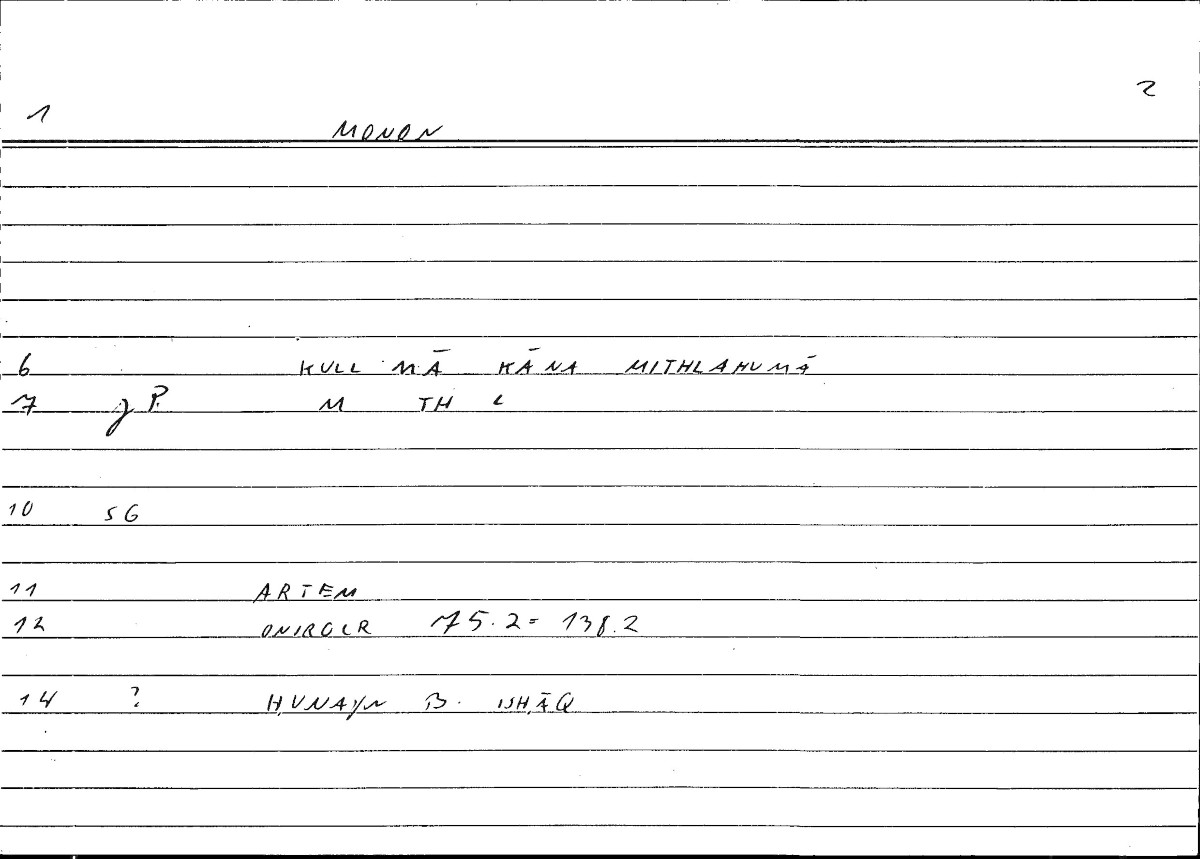 2
1 MONON
6 KULL MĀ KĀNA MITHLAHUMĀ
7 M TH L
10 SG
11 ARTEM
12 ONIROCR 75.2 = 138.2
14 ? ḤUNAYN B. ISḤĀQ